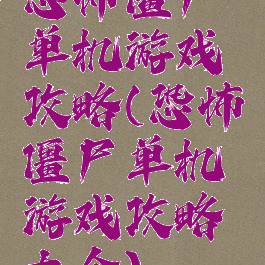 恐怖僵尸
单机游戏
攻略(恐怖
僵尸单机
游戏攻略
大全)